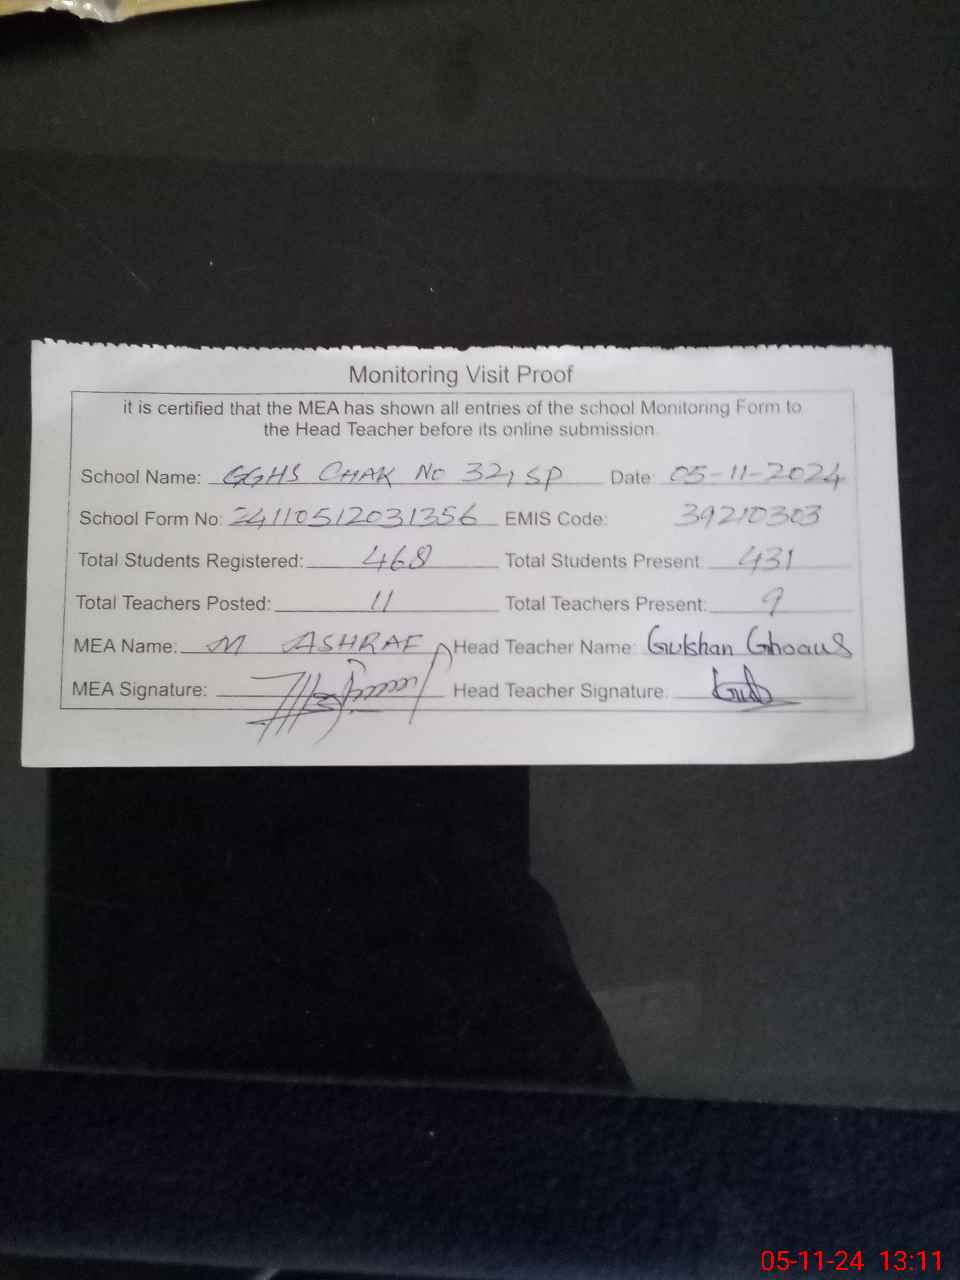 Monitoring Visit Proof
it is certified that the MEA has shown all entries of the school Monitoring Form to
the Head Teacher before its online submission.
School Name: GGHS CHAK No 32, SP Date: 05-11-2024
School Form No: 24110512031356 EMIS Code: 39210303
Total Students Registered: 468 Total Students Present: 431
Total Teachers Posted: 11 Total Teachers Present: 9
MEA Name: M ASHRAF Head Teacher Name: Gulshan Ghoaus
MEA Signature: Head Teacher Signature:
05-11-24 13:11